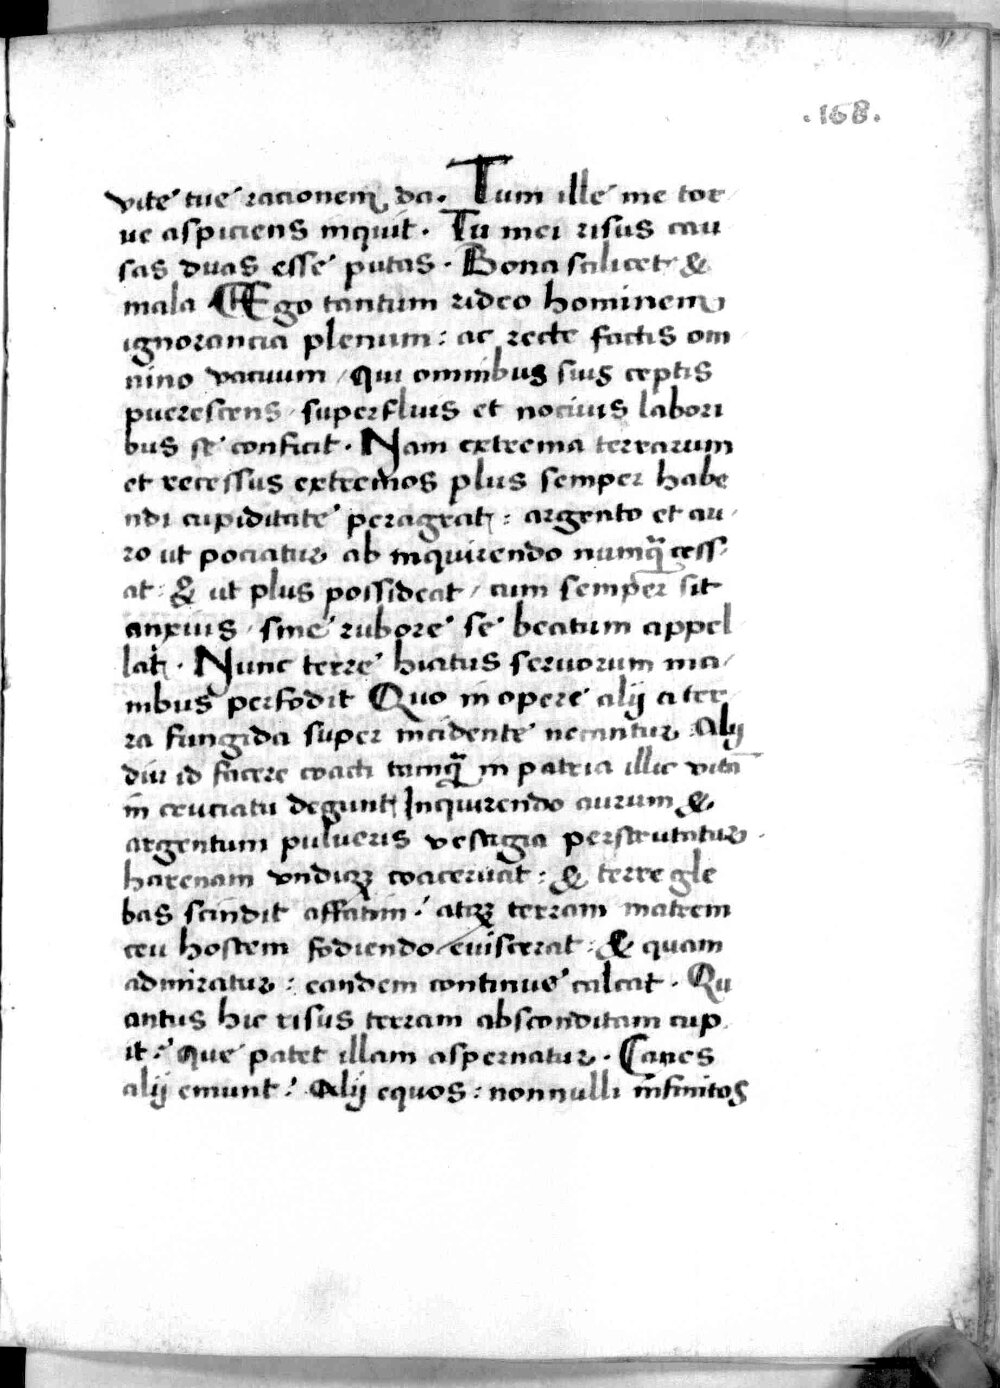 .168.
vite tue racionem da. Tum ille me tor
ue aspiciens inquit. Tu mei risus cau
sas duas esse putas. Bona scilicet &
mala Ego tantum rideo hominem
ignorancia plenum: ac recte factis om
nino vacuum / qui omnibus suis ceptis
puerescens / superfluis et nociuis labori
bus se conficit. Nam extrema terrarum
et recessus extremos plus semper habe
ndi cupiditate peragrat: argento et au
ro ut pociatur ab inquirendo numq̃ cess
at: & ut plus possideat / cum semper sit
anxius / sine rubore se beatum appel
lat. Nunc terre hiatus seruorum ma
nibus perfodit Quo in opere alij a ter
ra fungida super incidente necantur. Alij
diu id facere coacti tamq̃ in patria illic vitā
in cruciatu degunt Inquirendo aurum &
argentum pulueris vestigia perscrutatur.
harenam vndiqꝫ coaceruat: & terre gle
bas scindit affatim: atqꝫ terram matrem
ceu hostem fodiendo euiscerat: & quam
admiratur: eandem continue calcat. Qu
antus hic risus terram absconditam cup
it: que patet illam aspernatur. Canes
alij emunt: Alij equos: nonnulli infinitos